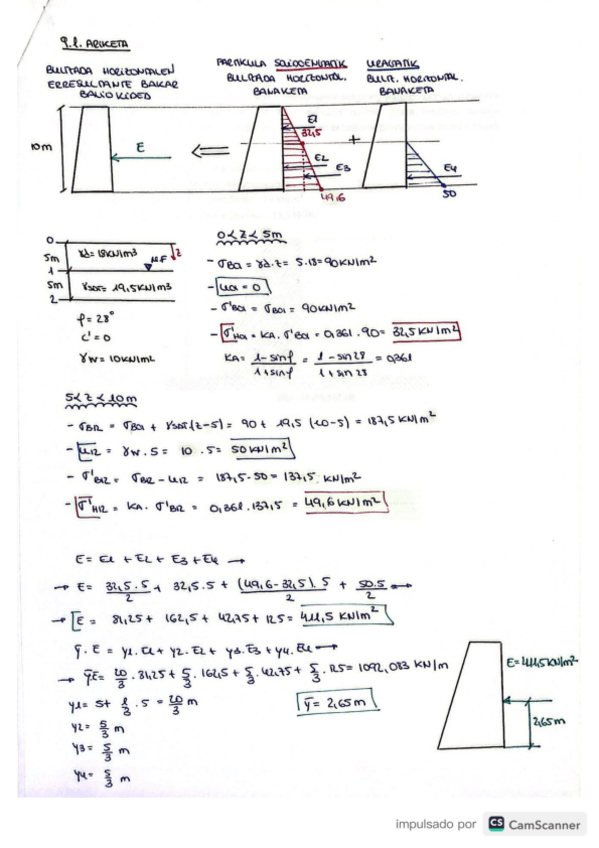 9.1. ARIKETA
BULTZADA HORIZONTALEN
ERRESULTANTE BAKAR
BALIOKIDEA
PARTIKULA SOLIDOENGATIK
BULTZADA HORIZONTAL.
BANAKETA
URAGATIK
BULT. HORIZONTAL.
BANAKETA
10m
E
E1
32,5
E2
E3
49,6
+
E4
50
0
5m
γd = 18 kN/m3
M.F
z
1
5m
γsat = 19,5 kN/m3
2
φ = 28°
c' = 0
γw = 10 kN/m2
0 < z < 5m
- σB1 = γd · z = 5·18 = 90 kN/m²
- u1 = 0
- σ'B1 = σB1 = 90 kN/m²
- σ'H1 = KA · σ'B1 = 0,361 · 90 = 32,5 kN/m²
KA = 1 - sinφ / 1 + sinφ = 1 - sin 28 / 1 + sin 28 = 0,361
5 < z < 10m
- σB2 = σB1 + γsat (z-5) = 90 + 19,5 (10-5) = 187,5 kN/m²
- u2 = γw · 5 = 10 · 5 = 50 kN/m²
- σ'B2 = σB2 - u2 = 187,5 - 50 = 137,5 kN/m²
- σ'H2 = KA · σ'B2 = 0,361 · 137,5 = 49,6 kN/m²
E = E1 + E2 + E3 + E4 →
→ E = 32,5·5 / 2 + 32,5·5 + (49,6 - 32,5)·5 / 2 + 50·5 / 2 →
→ E = 81,25 + 162,5 + 42,75 + 125 = 411,5 kN/m²
ȳ · E = y1 · E1 + y2 · E2 + y3 · E3 + y4 · E4 →
→ ȳE = 20/3 · 81,25 + 5/2 · 162,5 + 5/3 · 42,75 + 5/3 · 125 = 1092,083 kN/m
y1 = 5 + 1/3 · 5 = 20/3 m
ȳ = 2,65 m
y2 = 5/2 m
y3 = 5/3 m
y4 = 5/3 m
E = 411,5 kN/m²
2,65 m
impulsado por CS CamScanner